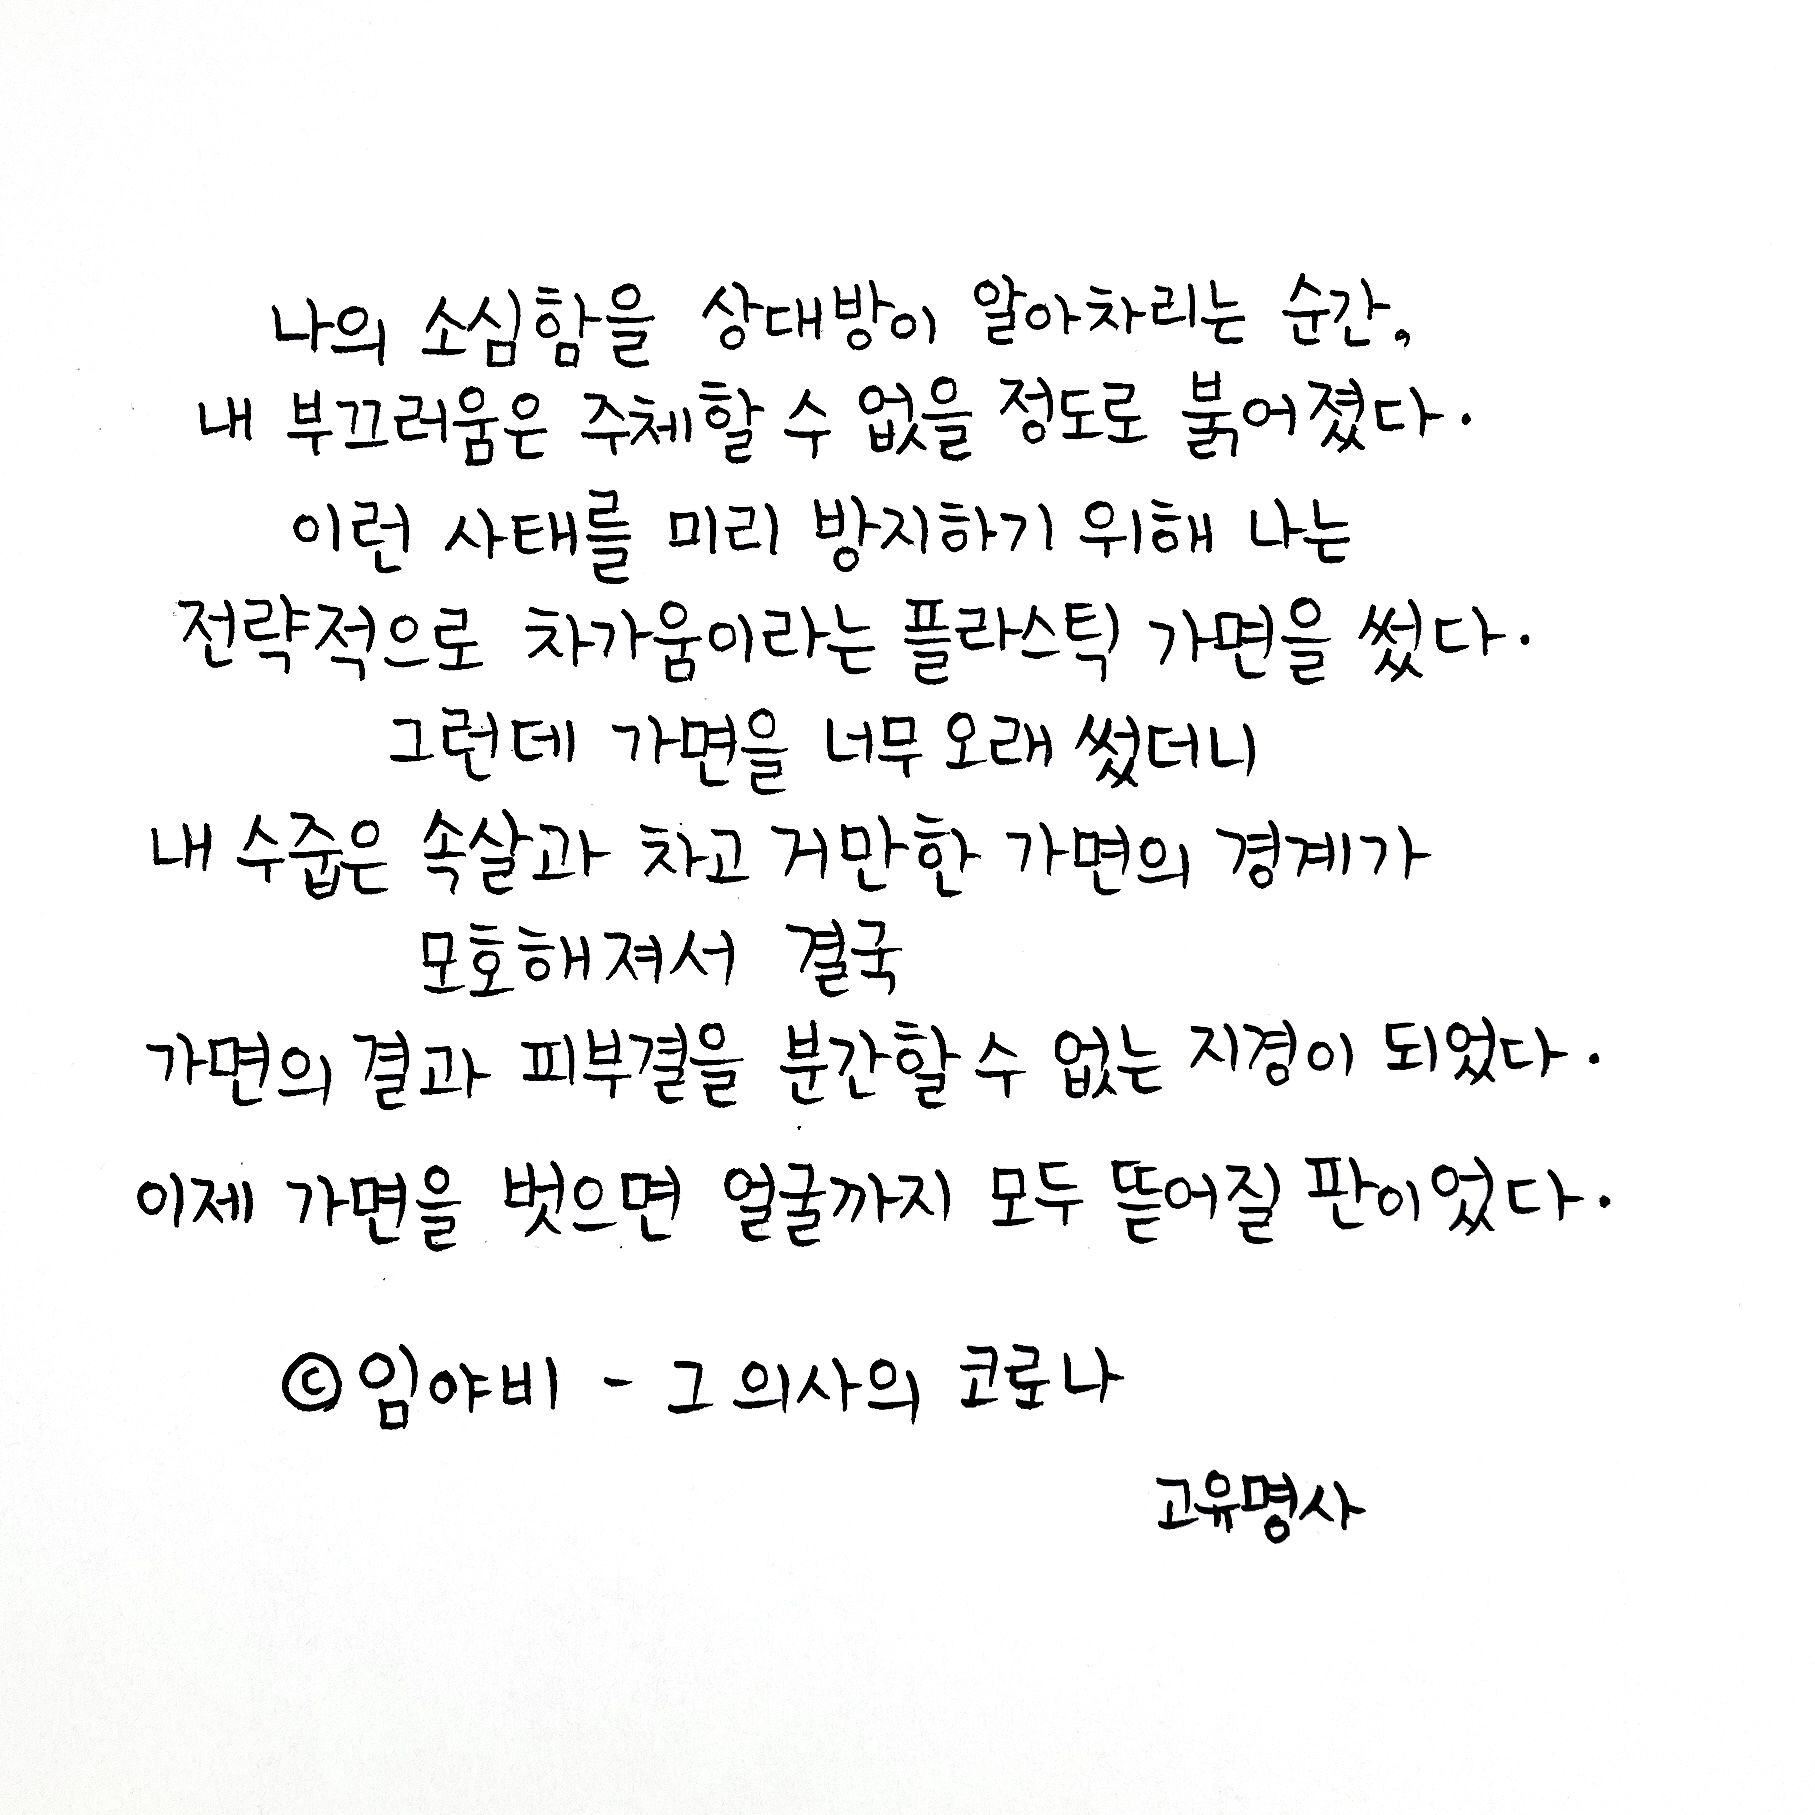 나의 소심함을 상대방이 알아차리는 순간,
내 부끄러움은 주체할 수 없을 정도로 붉어졌다.
이런 사태를 미리 방지하기 위해 나는
전략적으로 차가움이라는 플라스틱 가면을 썼다.
그런데 가면을 너무 오래 썼더니
내 수줍은 속살과 차고 거만한 가면의 경계가
모호해져서 결국
가면의 결과 피부결을 분간할 수 없는 지경이 되었다.
이제 가면을 벗으면 얼굴까지 모두 뜯어질 판이었다.
©임야비 - 그 의사의 코로나
고유명사